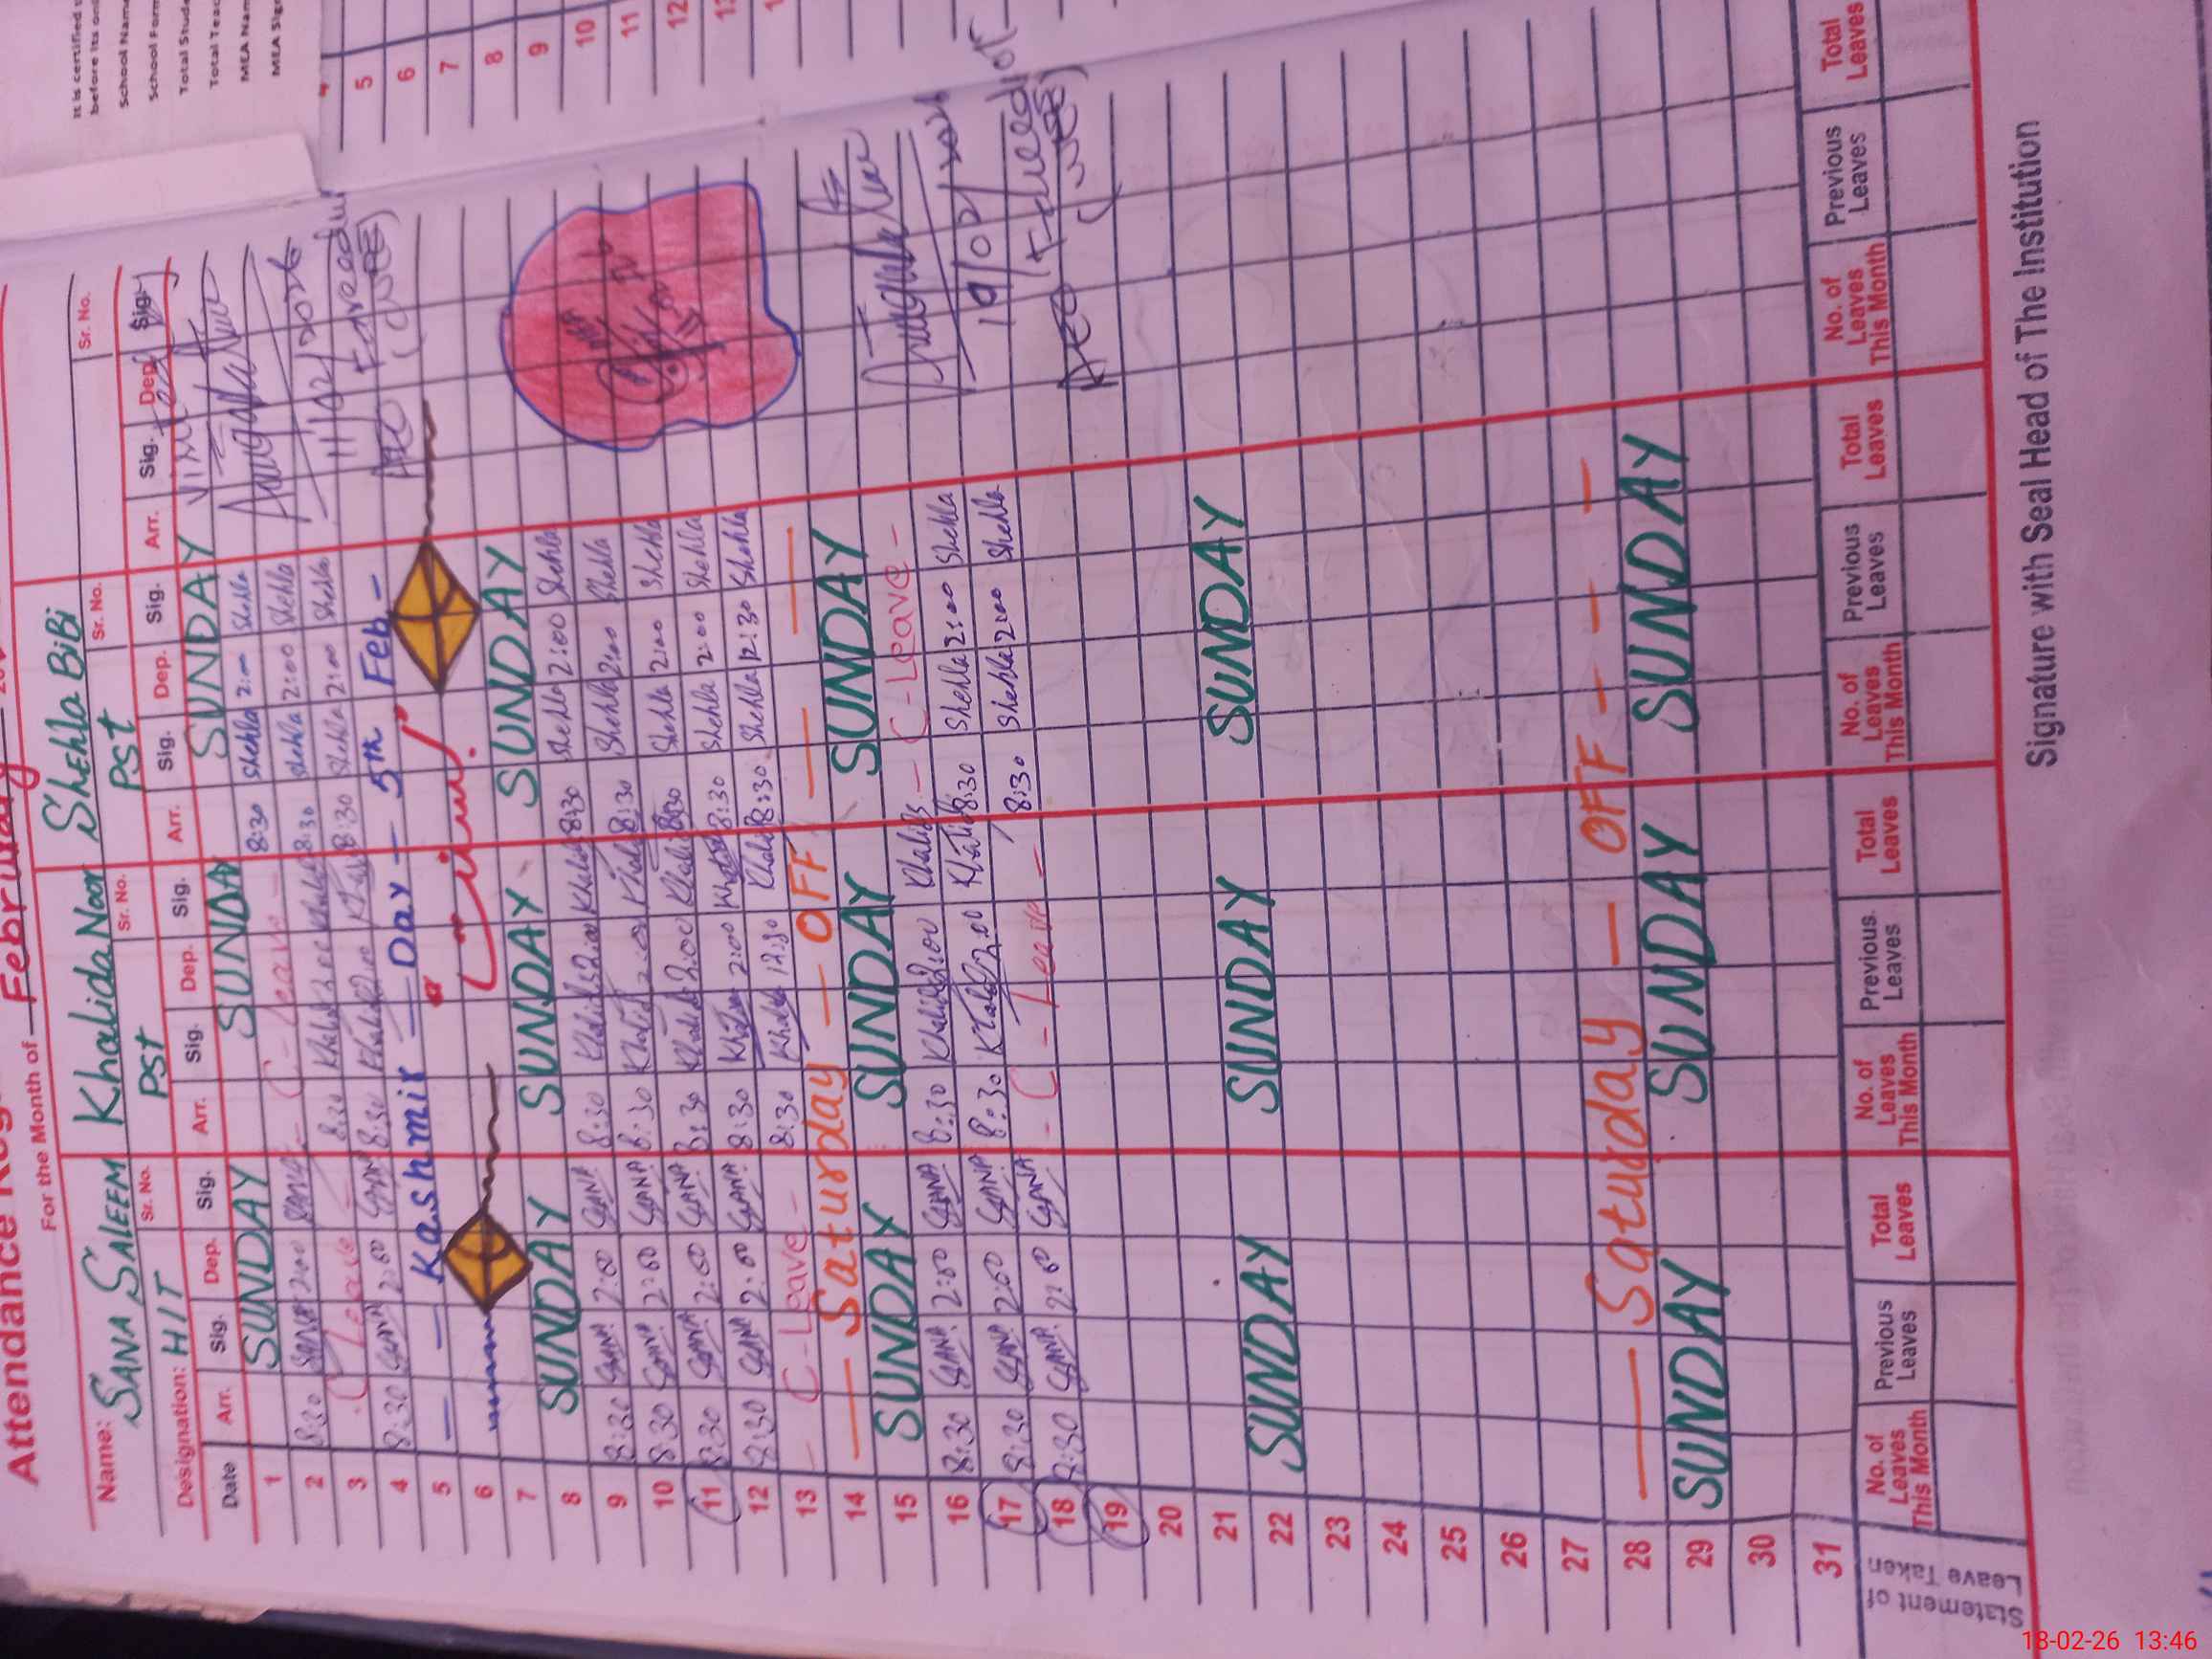 Attendance
For the Month of February
Name: SANA SALEEM Khalida Noor Shehla BiBi
Sr. No. Sr. No. Sr. No. Sr. No.
Designation: HIT PST PST
Date Arr. Sig. Dep. Sig. Arr. Sig. Dep. Sig. Arr. Sig. Dep. Sig. Arr. Sig. Dep. Sig.
1 SUNDAY SUNDAY SUNDAY
2 8:30 SANA 2:00 SANA - C - Leave - 8:30 Shehla 2:00 Shehla
3 C Leave 8:30 Khalida 2:00 Khalida 8:30 Shehla 2:00 Shehla
4 8:30 SANA 2:00 SANA 8:30 Khalida 2:00 Khalida 8:30 Shehla 2:00 Shehla
11/02/2026
AEO (WEE)
5 — — Kashmir — Day — 5th Feb —
6
7
8 SUNDAY SUNDAY SUNDAY
9 8:30 SANA 2:00 SANA 8:30 Khalida 2:00 Khalida 8:30 Shehla 2:00 Shehla
10 8:30 SANA 2:00 SANA 8:30 Khalida 2:00 Khalida 8:30 Shehla 2:00 Shehla
11 8:30 SANA 2:00 SANA 8:30 Khalida 2:00 Khalida 8:30 Shehla 2:00 Shehla
12 8:30 SANA 2:00 SANA 8:30 Khalida 2:00 Khalida 8:30 Shehla 2:00 Shehla
13 - C-Leave - 8:30 Khalida 12:30 Khalida 8:30 Shehla 12:30 Shehla
14 — Saturday — OFF — — —
15 SUNDAY SUNDAY SUNDAY
16 8:30 SANA 2:00 SANA 8:30 Khalida 2:00 Khalida - C-Leave -
17 8:30 SANA 2:00 SANA 8:30 Khalida 2:00 Khalida 8:30 Shehla 2:00 Shehla
18 8:30 SANA 2:00 SANA - C - Leave - 8:30 Shehla 2:00 Shehla
AEO (WEE)
19
20
21
22 SUNDAY SUNDAY SUNDAY
23
24
25
26
27
28 — Saturday — OFF — — — —
29 SUNDAY SUNDAY SUNDAY
30
31
Statement of Leave Taken
No. of Leaves This Month Previous Leaves Total Leaves No. of Leaves This Month Previous Leaves Total Leaves No. of Leaves This Month Previous Leaves Total Leaves No. of Leaves This Month Previous Leaves Total Leaves
Signature with Seal Head of The Institution
It is certified
before its
School Name
School
Total
Total
MEA
MEA
5
6
7
8
9
10
11
12
18-02-26 13:46